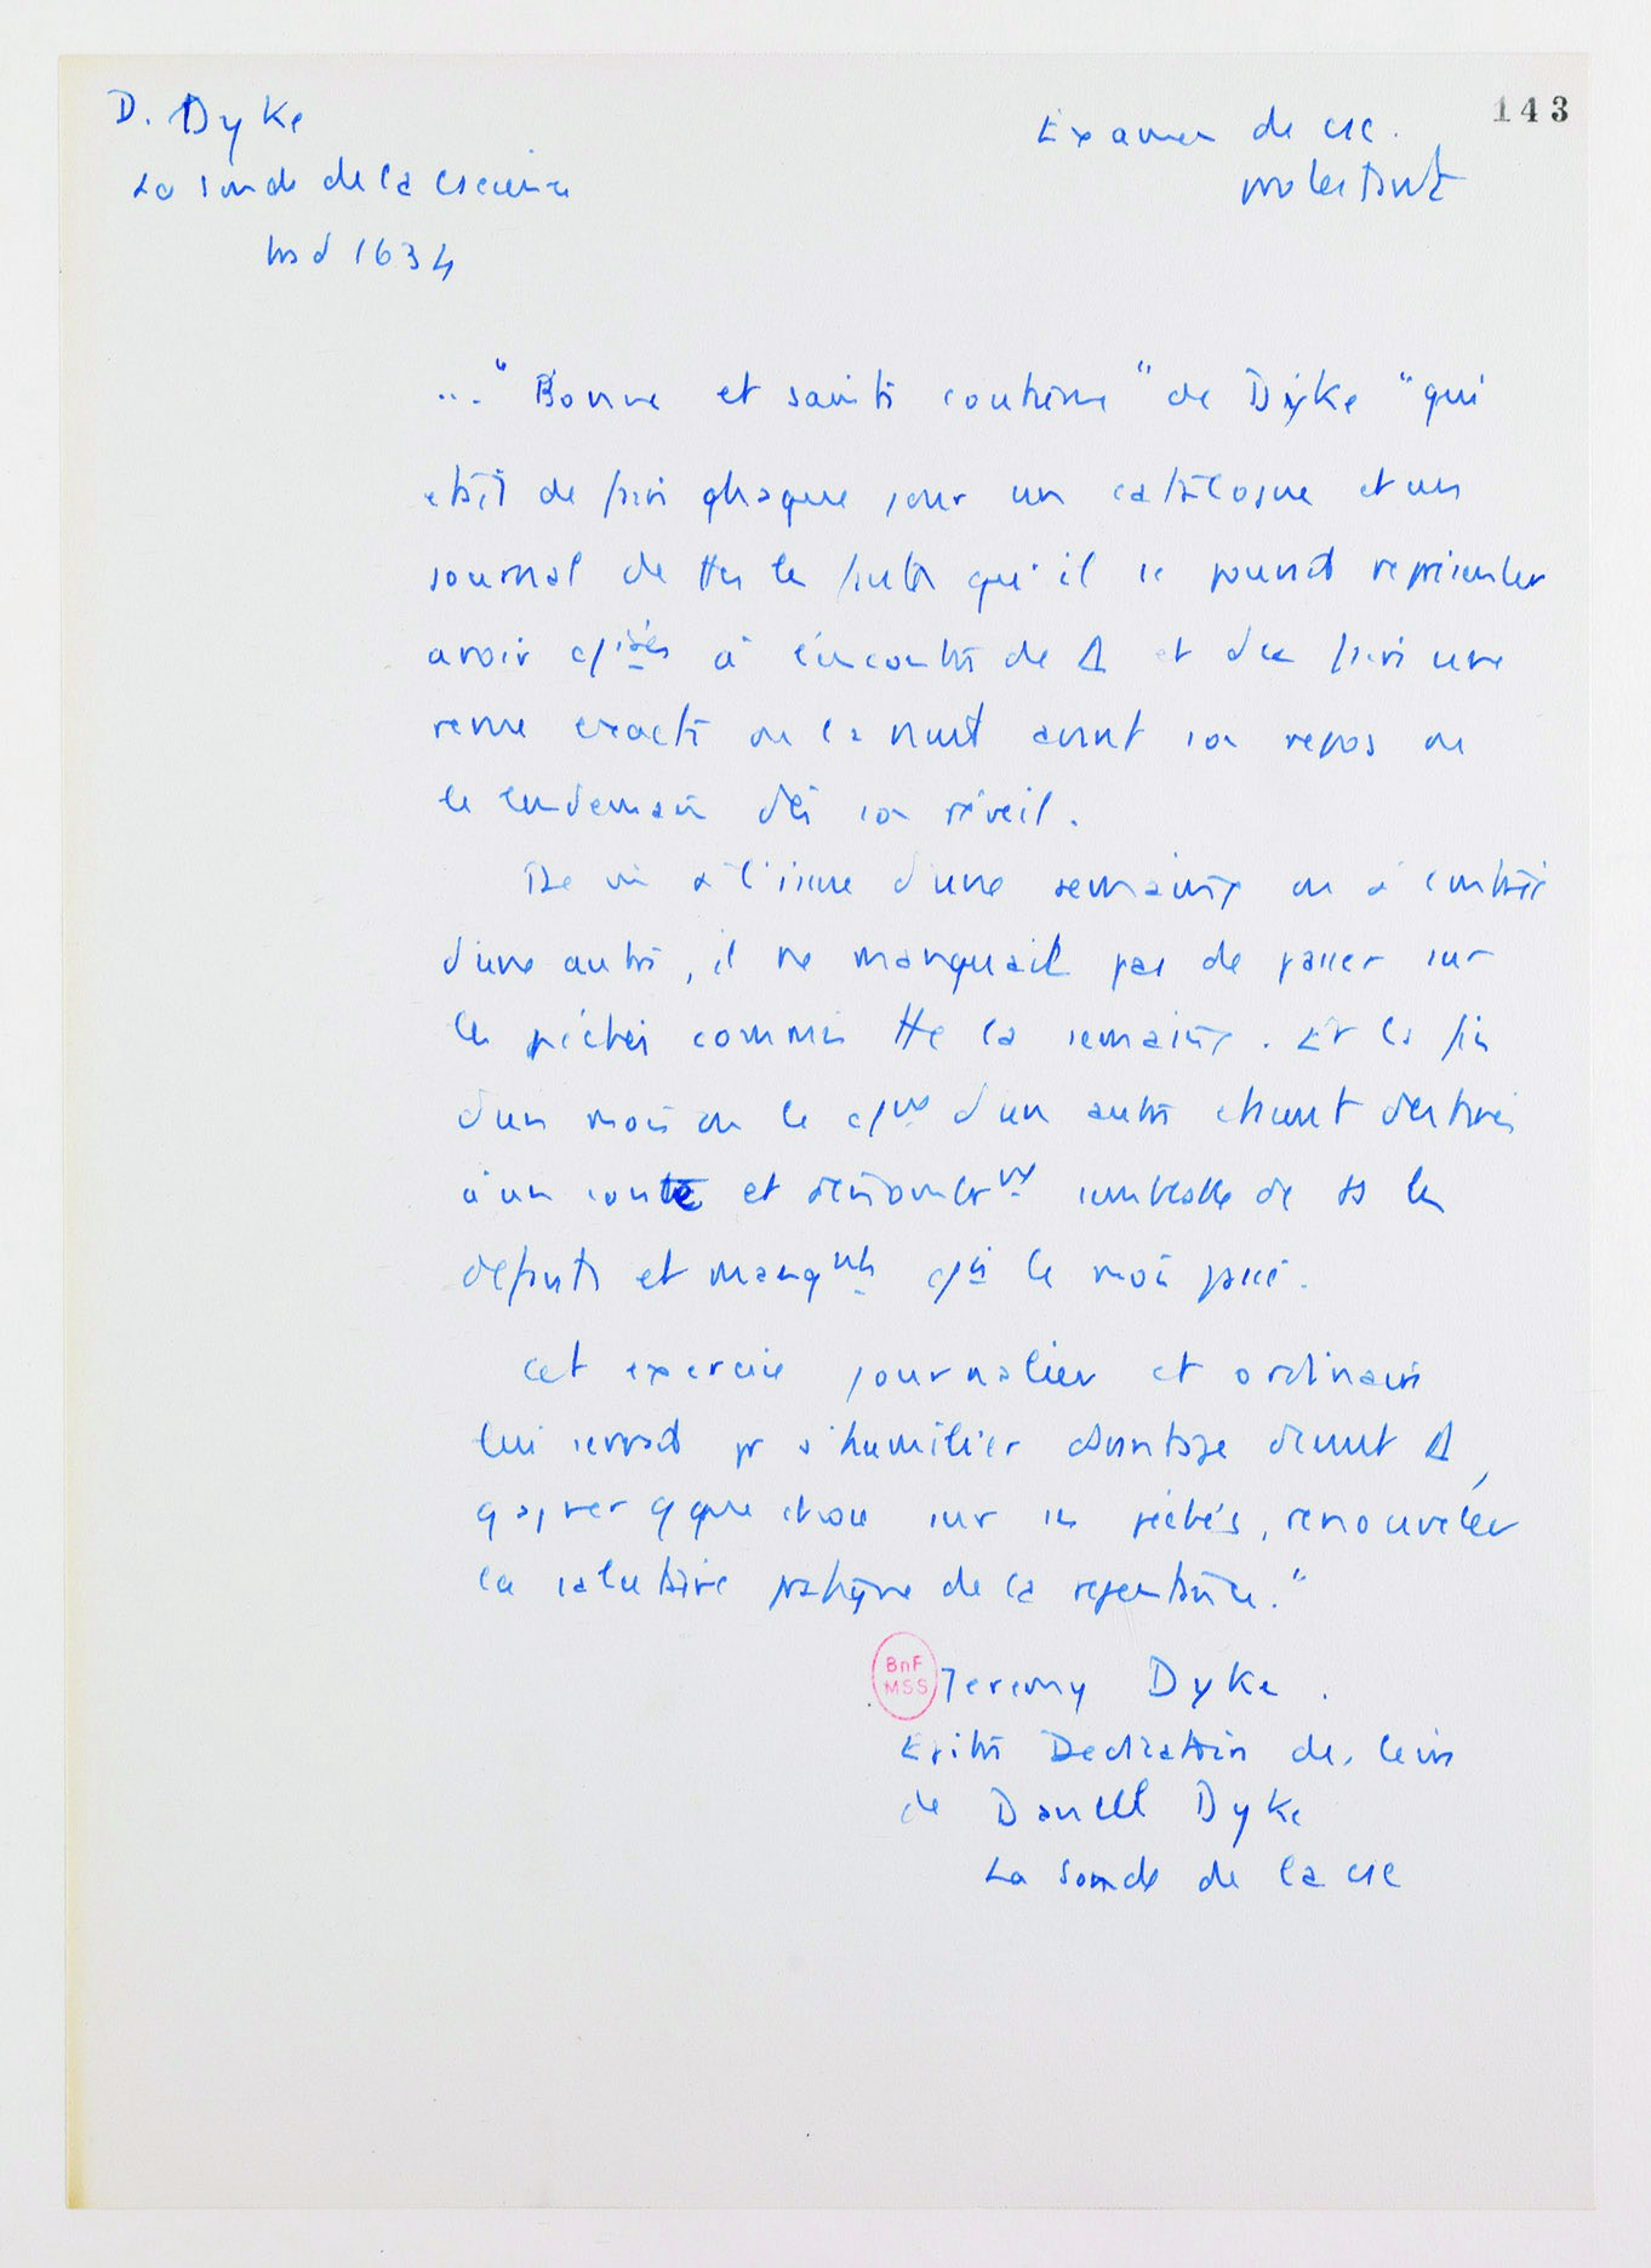 D. Dyke
La sonde de la cscience
trad 1634
Examen de csc.
protestant
143
..." Bonne et sainte coutume " de Dyke " qui
était de faire chaque jour un catalogue et un
journal de ttes les fautes qu'il se pouvait représenter
avoir à l'encontre de Δ et d'en faire une
revue exacte ou la nuit avant son repos ou
le lendemain dès son réveil.
De à l'issue d'une semaine ou à l'entrée
d'une autre, il ne manquait pas de passer sur
les péchés commis tte la semaine. Et la fin
d'un mois ou le d'un autre étaient destinés
à un conte et semblable de ts les
défauts et manqnts le mois passé.
Cet exercice journalier et ordinaire
lui servait pr s'humilier davantage devant Δ,
gagner qque chose sur ses péchés, renouveler
la salutaire pratique de la repentance."
BnF
MSS
Jeremy Dyke.
Epitre Dedicatoire de livre
de Daniel Dyke
La Sonde de la csc